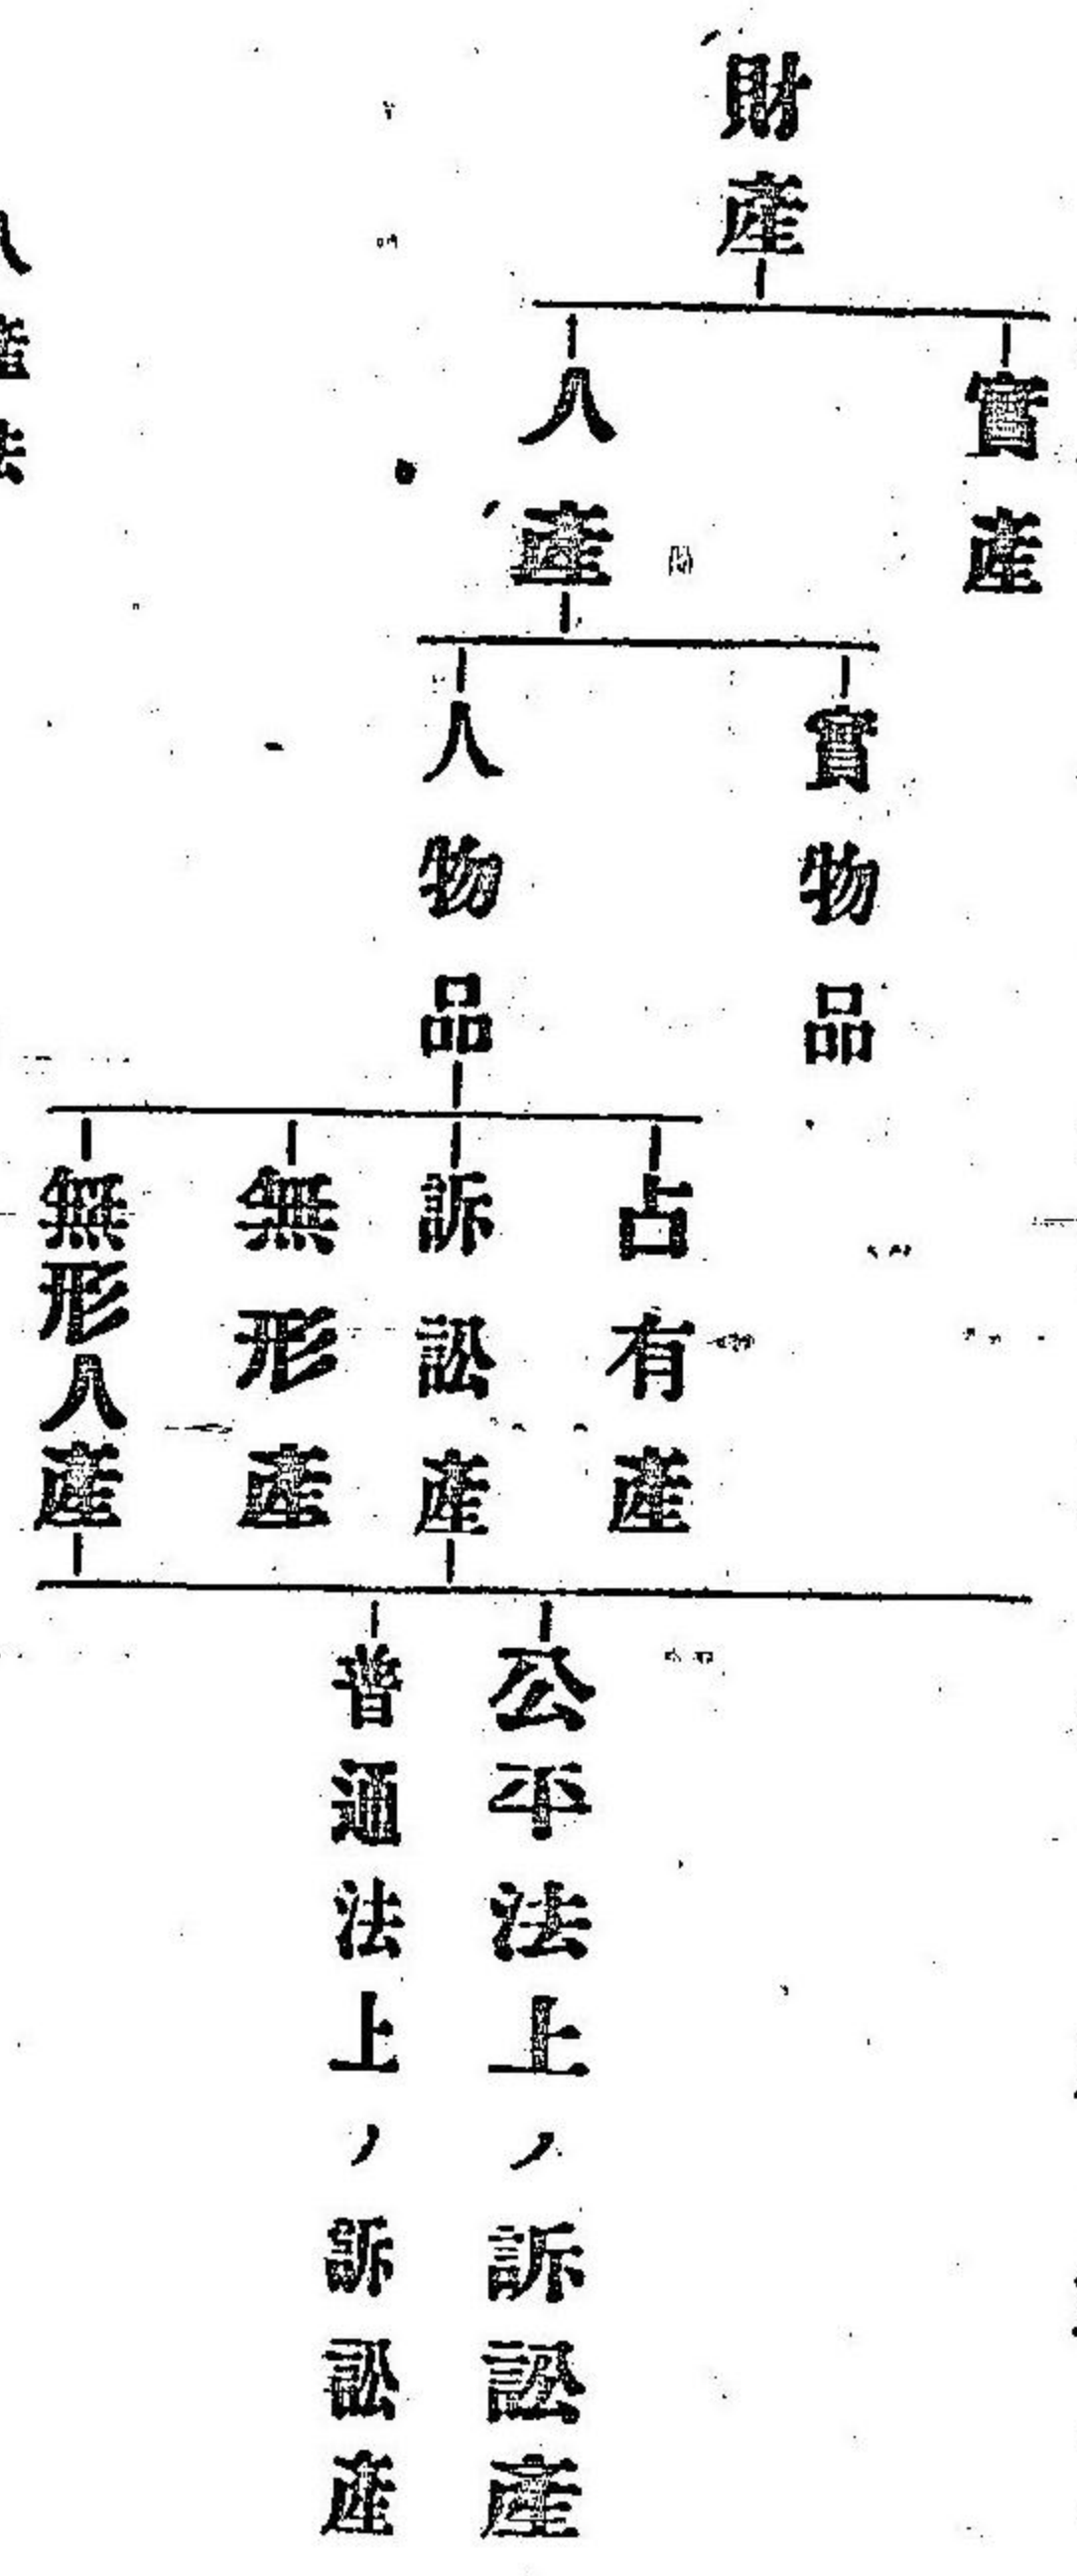 財產
實產
人產
實物品
人物品
占有產
訴訟產
無形產
無形人產
公平法上ノ訴訟產
普通法上ノ訴訟產
人產法